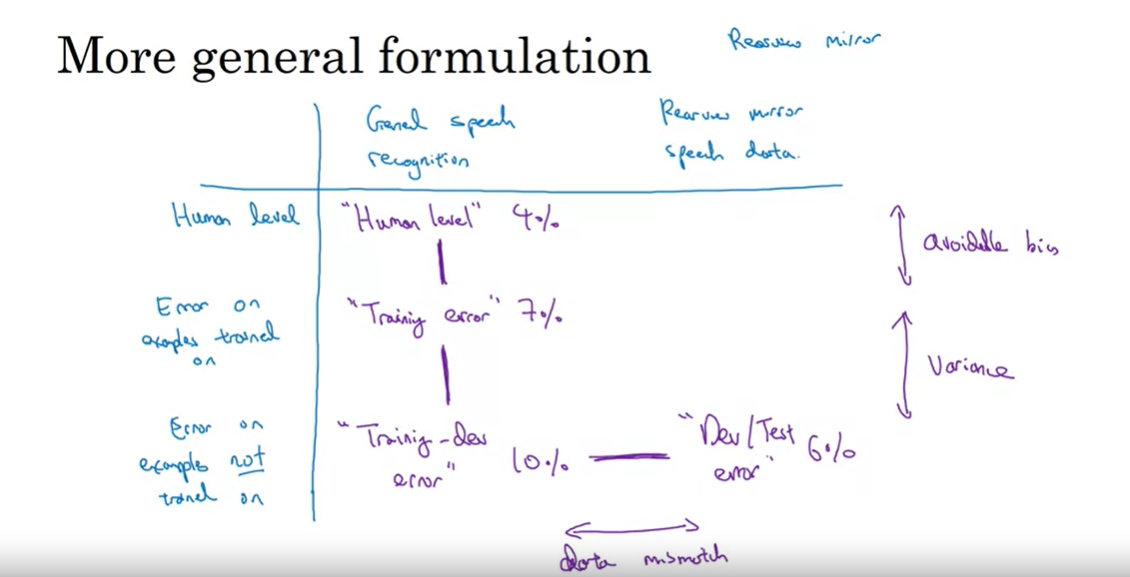 More general formulation
Rearview mirror
General speech
recognition
Rearview mirror
speech data.
Human level
"Human level" 4%
avoidable bias
Error on
examples trained
on
"Training error" 7%
Variance
Error on
examples not
trained on
"Training-dev
error"
10%
"Dev/Test
error"
6%
data mismatch